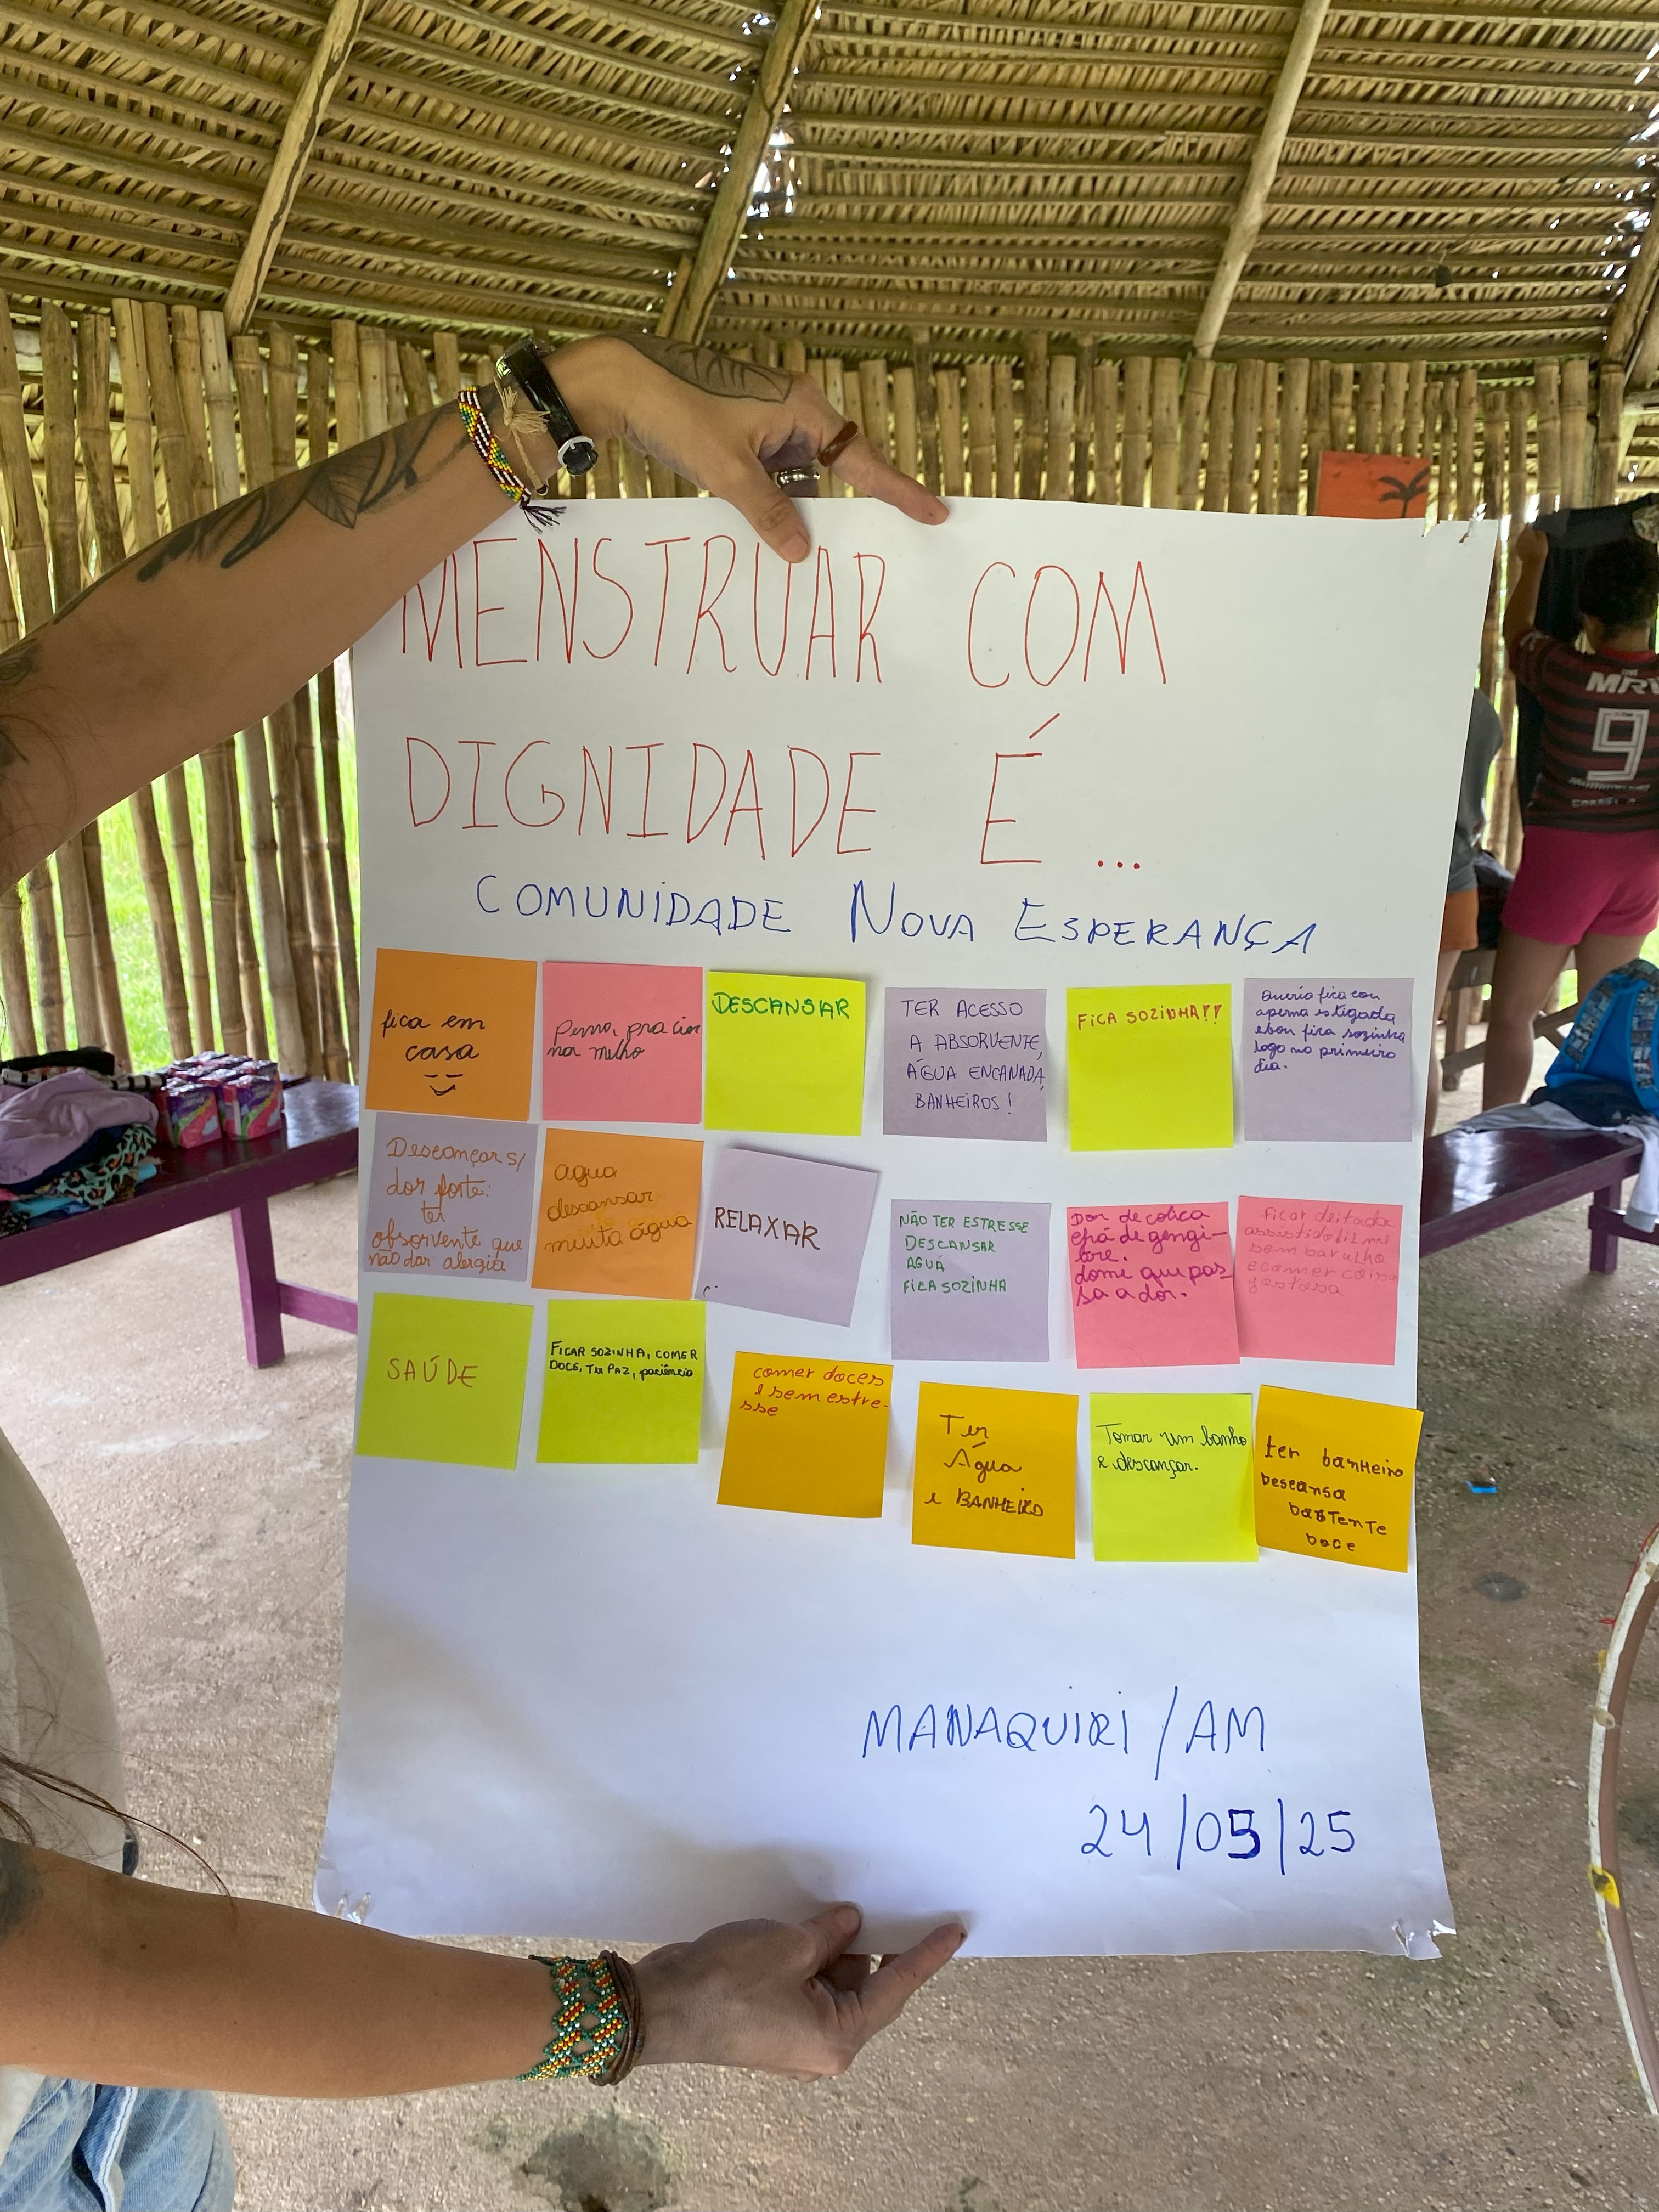 MENSTRUAR COM
DIGNIDADE É...
COMUNIDADE NOVA ESPERANÇA
fica em
casa
perna, pra cima
na
DESCANSAR
TER ACESSO
A ABSORVENTE,
ÁGUA ENCANADA,
BANHEIROS!
FICA SOZINHA!!
Queria fica con
aperna estigada
ebon fica sozinha
logo no primeiro
dia.
Descançar s/
dor forte:
ter
obsorvente que
não dar alergia
agua
descansar
muita água
RELAXAR
NÃO TER ESTRESSE
DESCANSAR
AGUÁ
FICA SOZINHA
Dor de colica
e chá de gengi-
bre.
domi que pas
sa a dor.
ficar deitada
assistido filmi
sem barulho
e comer coisa
gostosa
SAÚDE
FICAR SOZINHA, COMER
DOCE, Ter PAZ, paciência
comer doces
e sem estre-
sse
Ter
Água
e BANHEIRO
Tomar um banho
e descançar.
ter banheiro
Descansa
bastente
Doce
MANAQUIRI/AM
24/05/25
MRV
9